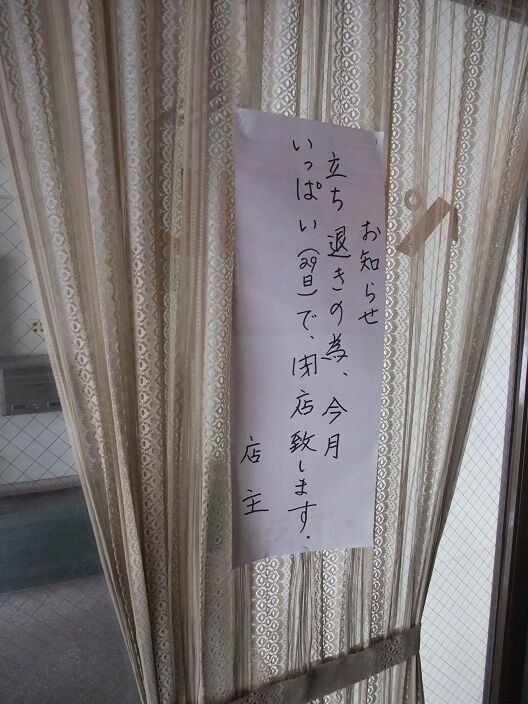 お知らせ
立ち退きの為、今月
いっぱい(29日)で、閉店致します。
店主